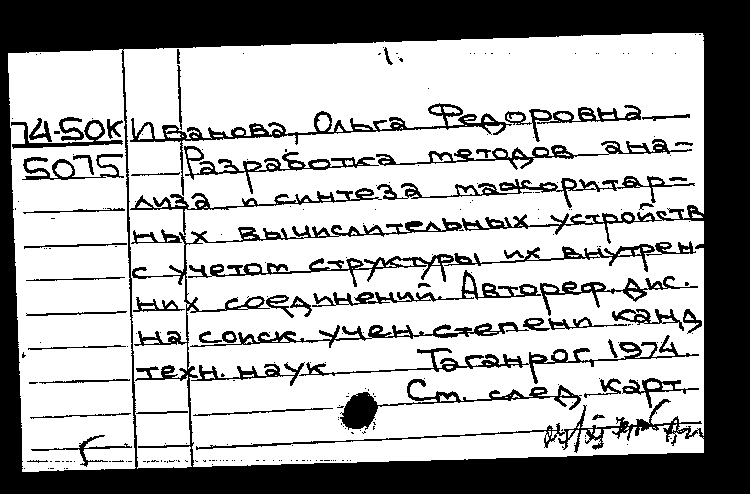 1.
74-50К Иванова, Ольга Федоровна.
5075 Разработка методов ана-
лиза и синтеза мажоритар-
ных вычислительных устройств
с учетом структуры их внутрен-
них соединений. Автореф. дис.
на соиск. учен. степени канд.
техн. наук. Таганрог, 1974.
См. след. карт.